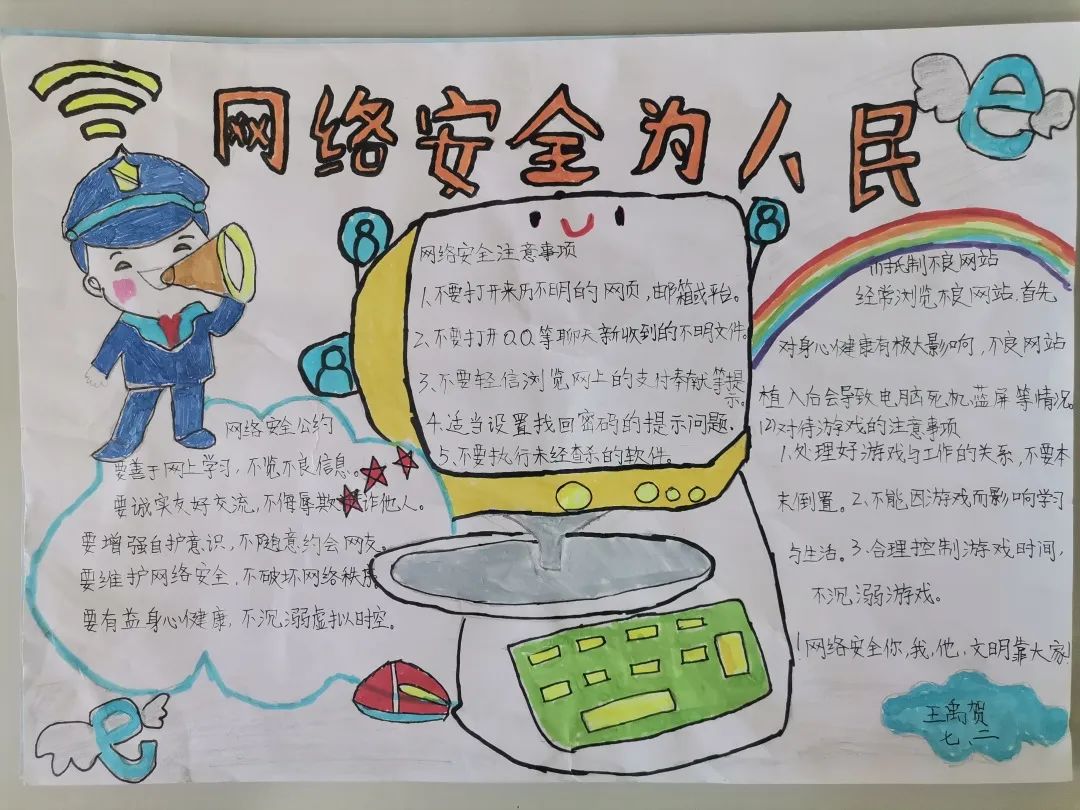 网络安全为人民
网络安全注意事项
1、不要打开来历不明的网页,邮箱或平台。
2、不要打开QQ等聊天新收到的不明文件。
3、不要轻信浏览网上的支付奉献等提示。
4、适当设置找回密码的提示问题.
5、不要执行未经查杀的软件。
网络安全公约
要善于网上学习,不览不良信息。
要诚实友好交流,不侮辱欺诈他人。
要增强自护意识,不随意约会网友。
要维护网络安全,不破坏网络秩序
要有益身心健康,不沉溺虚拟时空。
(1)抵制不良网站
经常浏览不良网站,首先
对身心健康有极大影响,不良网站
植入后会导致电脑死机蓝屏等情况。
(2)对待游戏的注意事项
1、处理好游戏与工作的关系,不要本
末倒置。2、不能因游戏而影响学习
与生活。3、合理控制游戏时间,
不沉溺游戏。
!网络安全你,我,他,文明靠大家!
王禹贺
七、二
e
e